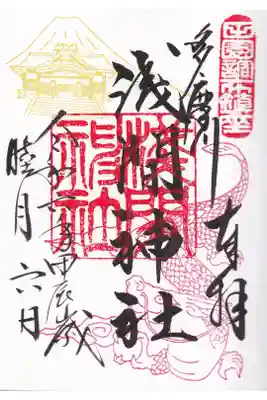 田園調布鎮座
奉拝
多摩川
浅間神社
令和六年甲辰歳
睦月六日
淺間神社